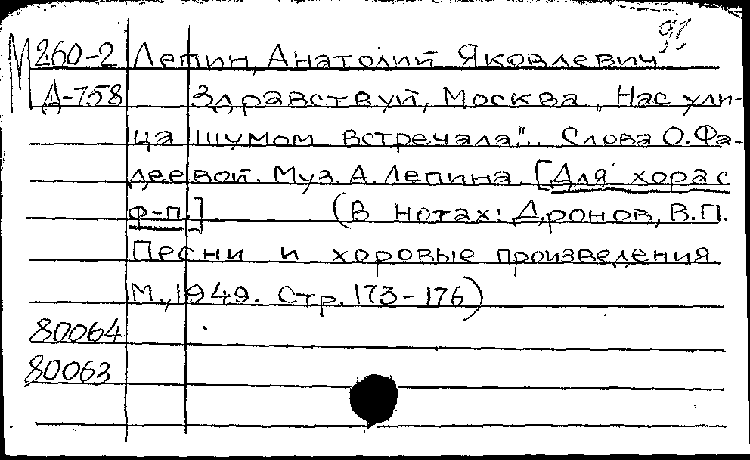 91
М 260-2 Лепин, Анатолий Яковлевич
Д-758 Здравствуй, Москва. „Нас ули-
ца шумом встречала". Слова О. Фа-
деевой. Муз. А. Лепина. [Для хора с
ф-п.] (В нотах: Дронов, В.П.
Песни и хоровые произведения
М., 1949. Стр. 173-176)
80064
80063